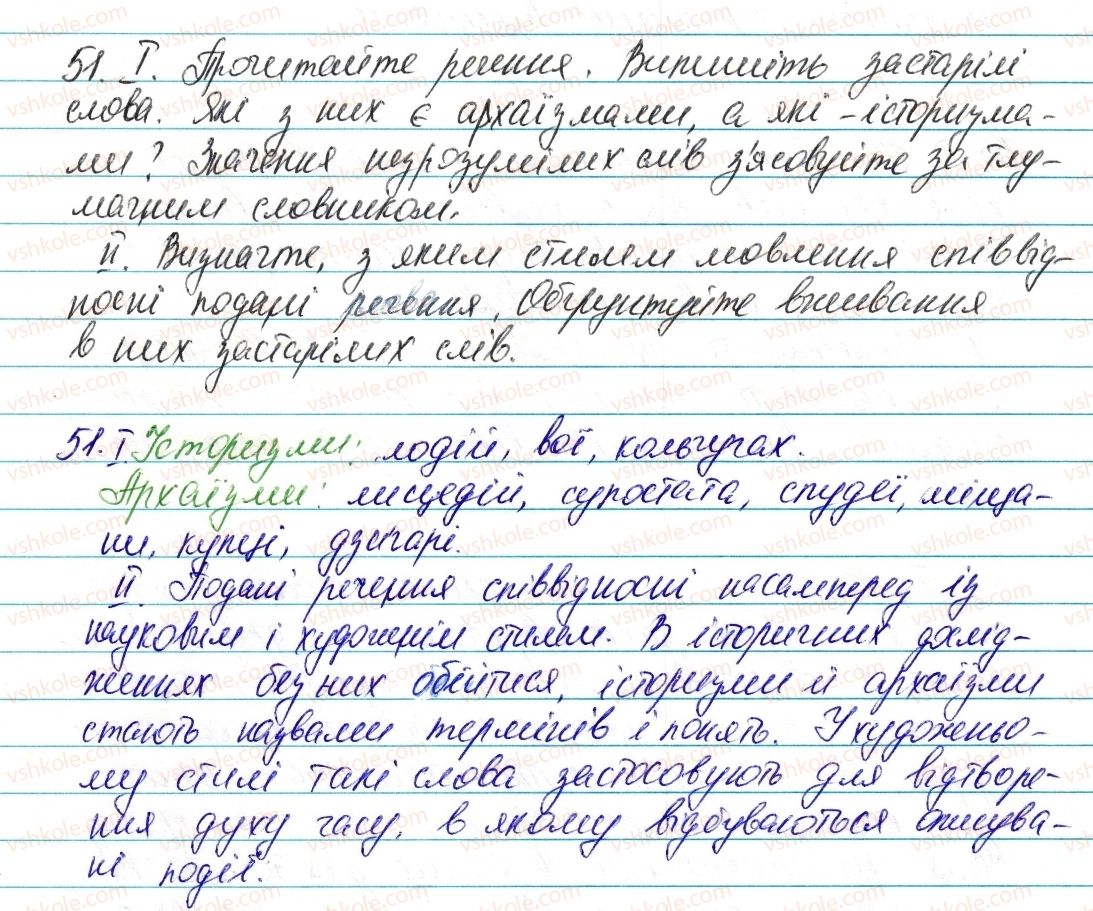 51. I. Прочитайте речення. Випишіть застарілі
слова. Які з них є архаїзмами, а які – історизма-
ми? Значення незрозумілих слів з'ясовуйте за тлу-
мачним словником.
II. Визначте, з яким стилем мовлення співвід-
носні подані речення. Обґрунтуйте вживання
в них застарілих слів.
51. I Історизми: лодій, вої, кольчугах.
Архаїзми: лицедій, супостата, спудеї, міща-
ни, купці, дзигарі.
II. Подані речення співвідносні насамперед із
науковим і художнім стилем. В історичних дослід-
женнях без них обійтися, історизми й архаїзми
стають назвами термінів і понять. У художньо-
му стилі такі слова застосовують для відтворе-
ння духу часу, в якому відбуваються описува-
ні події.